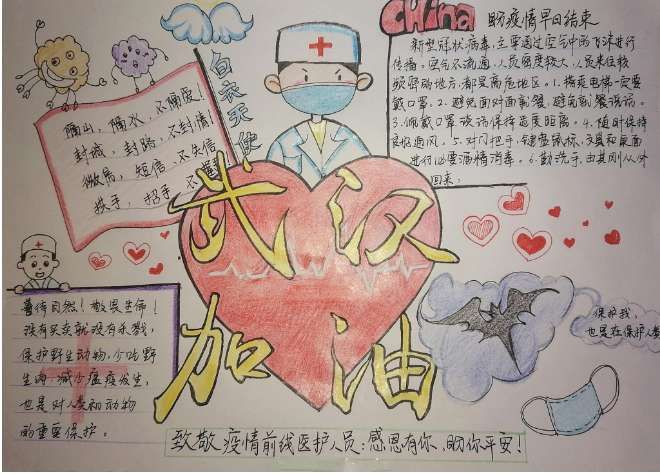 China 盼疫情早日结束
新型冠状病毒,主要通过空气中的飞沫进行
传播,空气不流通,人员密度较大,人员来往较
频繁的地方,都是高危地区。1.搭乘电梯一定要
戴口罩。2.避免面对面就餐,避免就餐说话。
3.佩戴口罩谈话保持适度距离。4.随时保持
良好通风。5.对门把手,键盘鼠标,文具和桌面
进行必要酒精消毒。6.勤洗手,尤其刚从外
回来。
白衣天使
隔山,隔水,不隔爱!
封城,封路,不封情!
微离,短信,不失信
扶手,招手,不
武汉
加油
善待自然!敬畏生命!
没有买卖就没有杀戮,
保护野生动物,少吃野
生肉,减少瘟疫发生,
也是对人类和动物
的重要保护。
保护我,
也是在保护人类
致敬疫情前线医护人员:感恩有你,盼你平安!